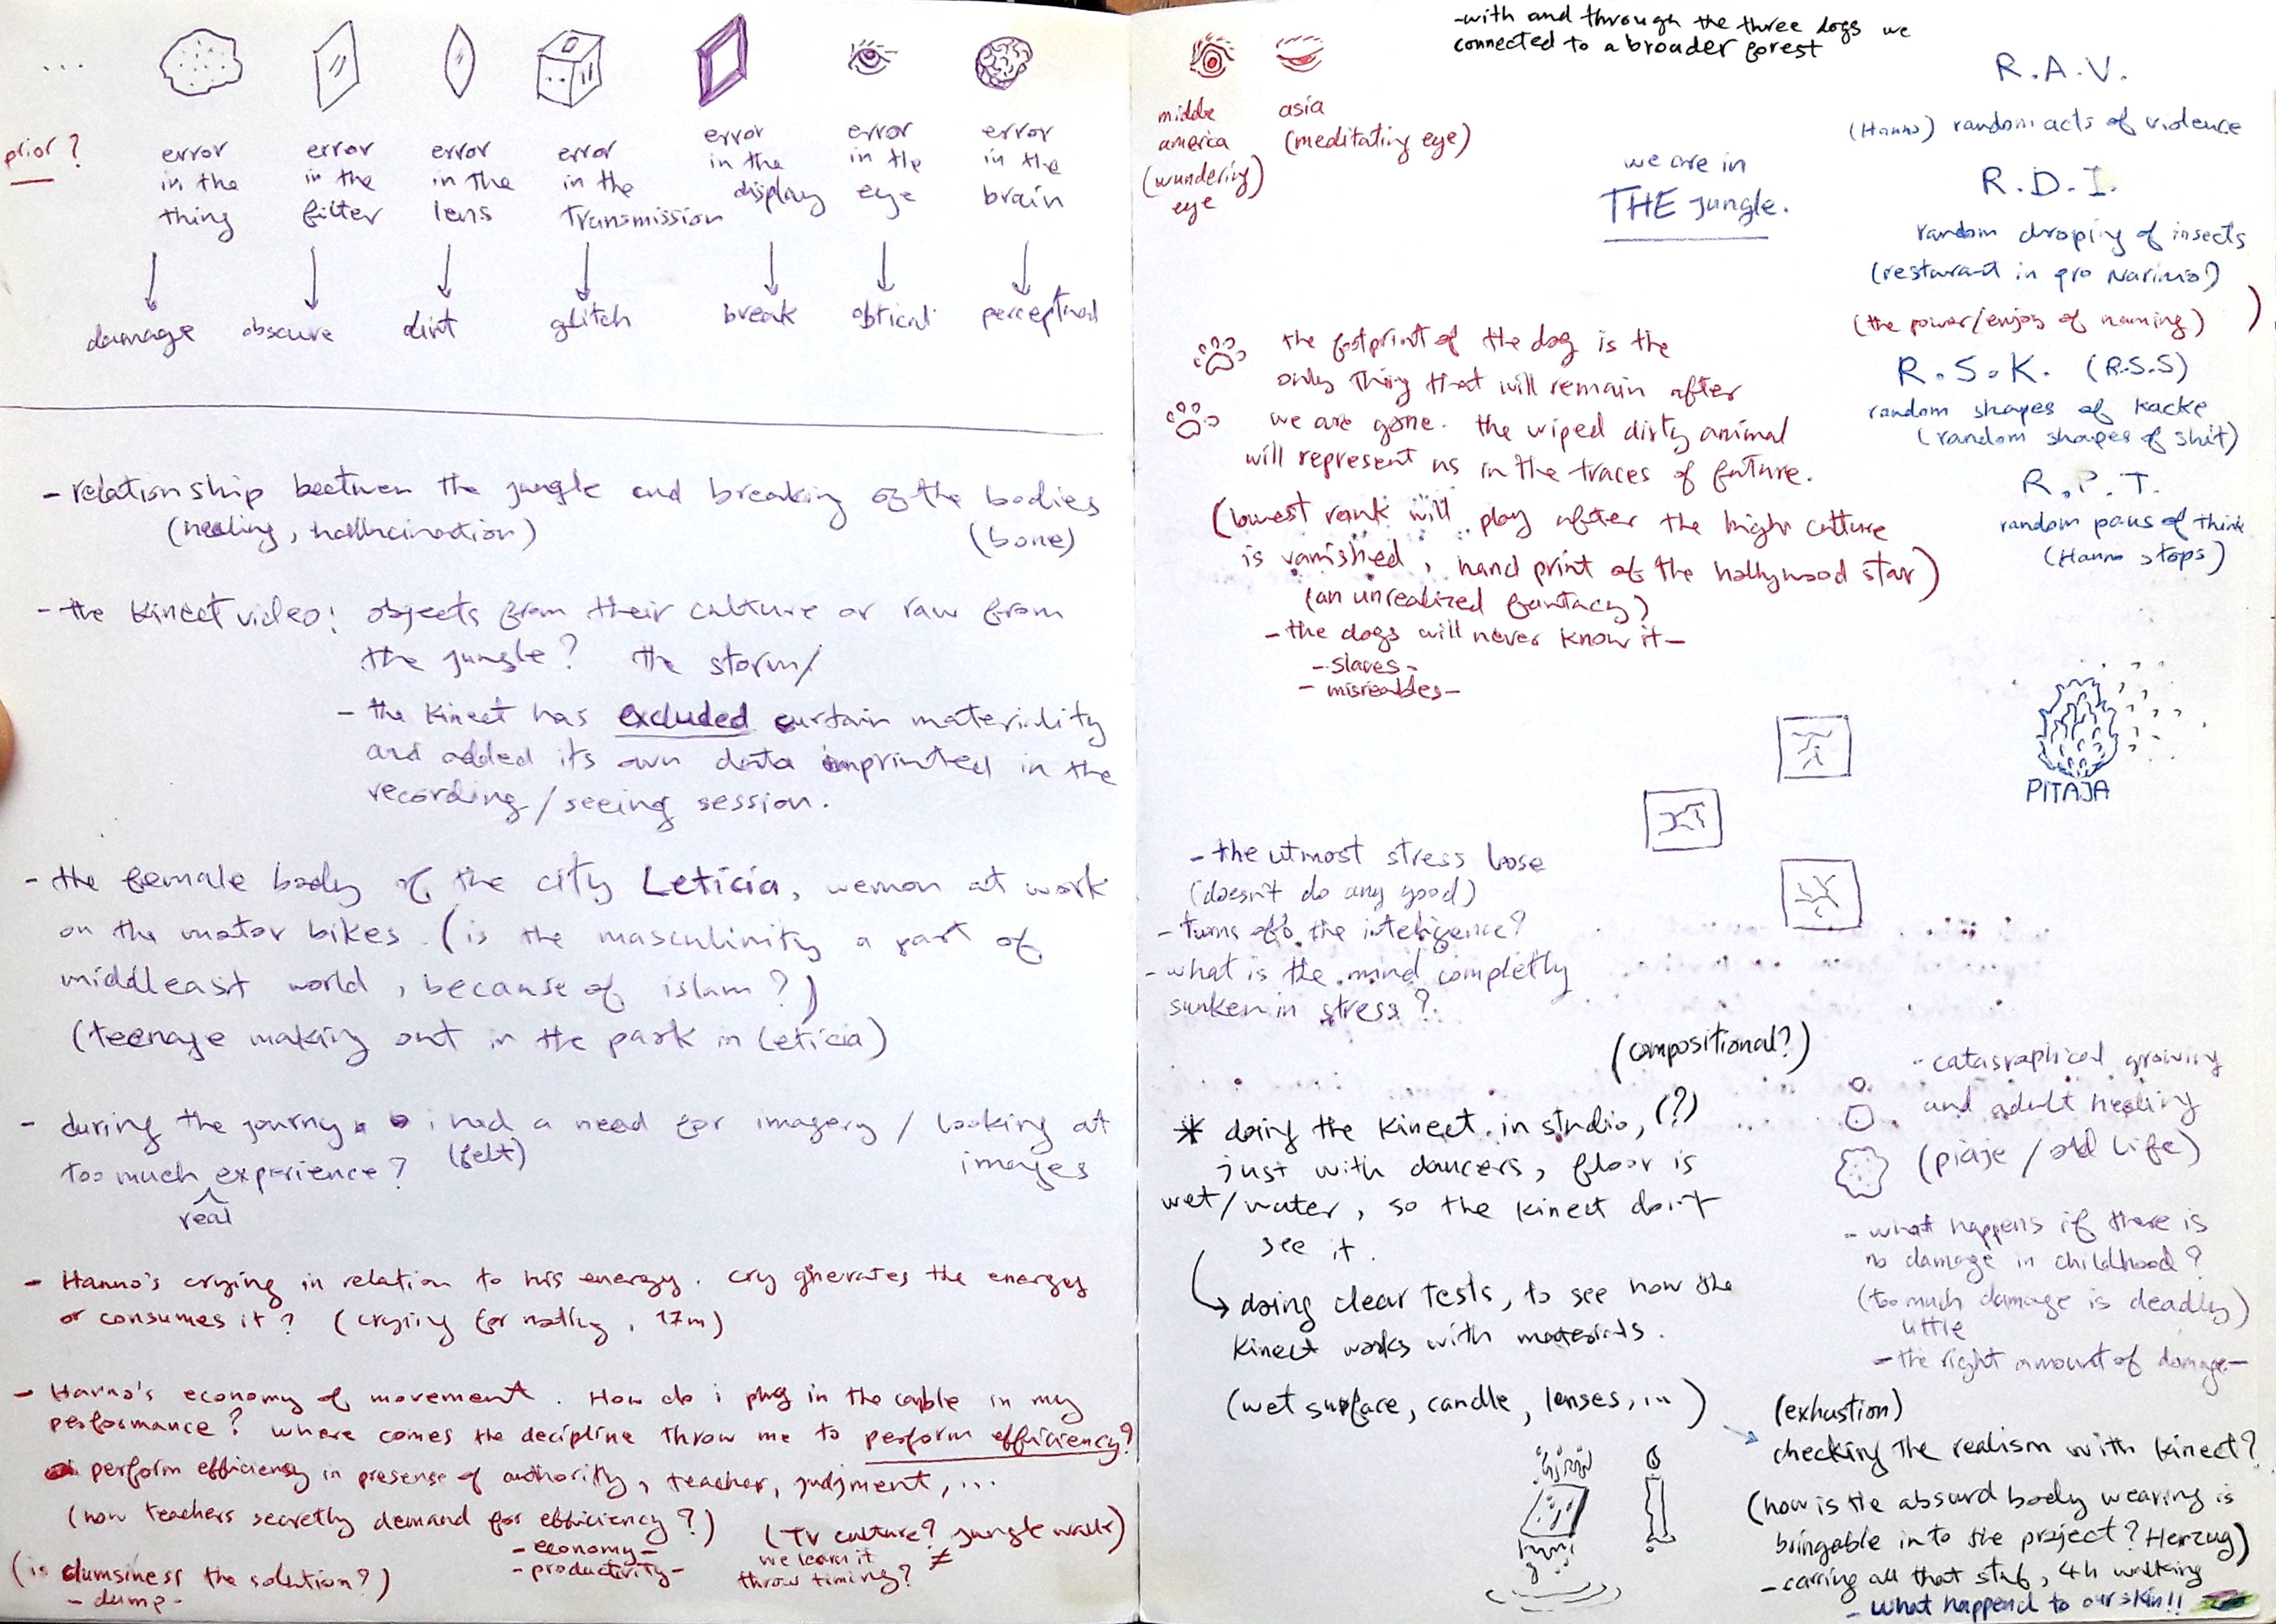 ...
prior?
error in the thing
error in the filter
error in the lens
error in the transmission
error in the display
error in the eye
error in the brain
damage
obscure
dirt
glitch
break
obtical
perceptual
- relationship beetwen the jungle and breaking of the bodies
(healing, hallucination) (bone)
- the Kinect video: objects from their culture or raw from
the jungle? the storm/
- the kinect has excluded curtain materiality
and added its own data imprinted in the
recording/seeing session.
- the female body of the city Leticia, wemon at work
on the motor bikes. (is the masculinity a part of
middleeast world, because of islam?)
(teenage making out in the park in Leticia)
- during the journy i had a need for imagery / looking at
(felt) images
too much experience?
real
- Hanno's crying in relation to his energy. cry generates the energy
or consumes it? (crying for , 17m)
- Hanno's economy of movement. How do i plug in the cable in my
performance? where comes the decipline throw me to perform efficiency?
perform efficiency in presense of authority, teacher, judjment, ...
(how teachers secretly demand for efficiency?) (TV culture? jungle walk)
- economy -
- productivity -
we learn it
throw timing? ≠
(is clumsiness the solution?)
- dump -
-with and through the three dogs we
connected to a broader forest
middle
america
(wundering)
eye
asia
(meditating eye)
we are in
THE jungle.
R.A.V.
(Hanno) random acts of violence
R.D.I.
random droping of insects
(resturant in pro Narinio)
(the power/enjoy of naming)
R.S.K. (R.S.S)
random shapes of kacke
(random shapes of shit)
R.P.T.
random paus of think
(Hanno stops)
the footprint of the dog is the
only thing that will remain after
we are gone. the wiped dirty animal
will represent us in the traces of future.
(lowest rank will play after the high culture
is vanished, hand print of the hollywood star)
(an unrealized fantacy)
- the dogs will never know it -
- slaves -
- misreables -
PITAJA
- the utmost stress lose
(doesn't do any good)
- turns off the inteligence?
- what is the mind completly
sunken in stress?
(compositional?)
* doing the kinect in studio, (?)
just with dancers, floor is
wet/water, so the kinect don't
see it.
doing clear tests, to see how the
kinect works with materials.
(wet surface, candle, lenses, ...)
- catasraphical growing
and adult healing
(piaje / old life)
- what happens if there is
no damage in childhood?
(too much damage is deadly)
little
- the right amount of damage -
(exhustion)
checking the realism with kinect?
(how is the absurd body wearing is
bringable in to the project? Herzug)
- carring all that stuf, 4h walking
- what happend to our skin!!